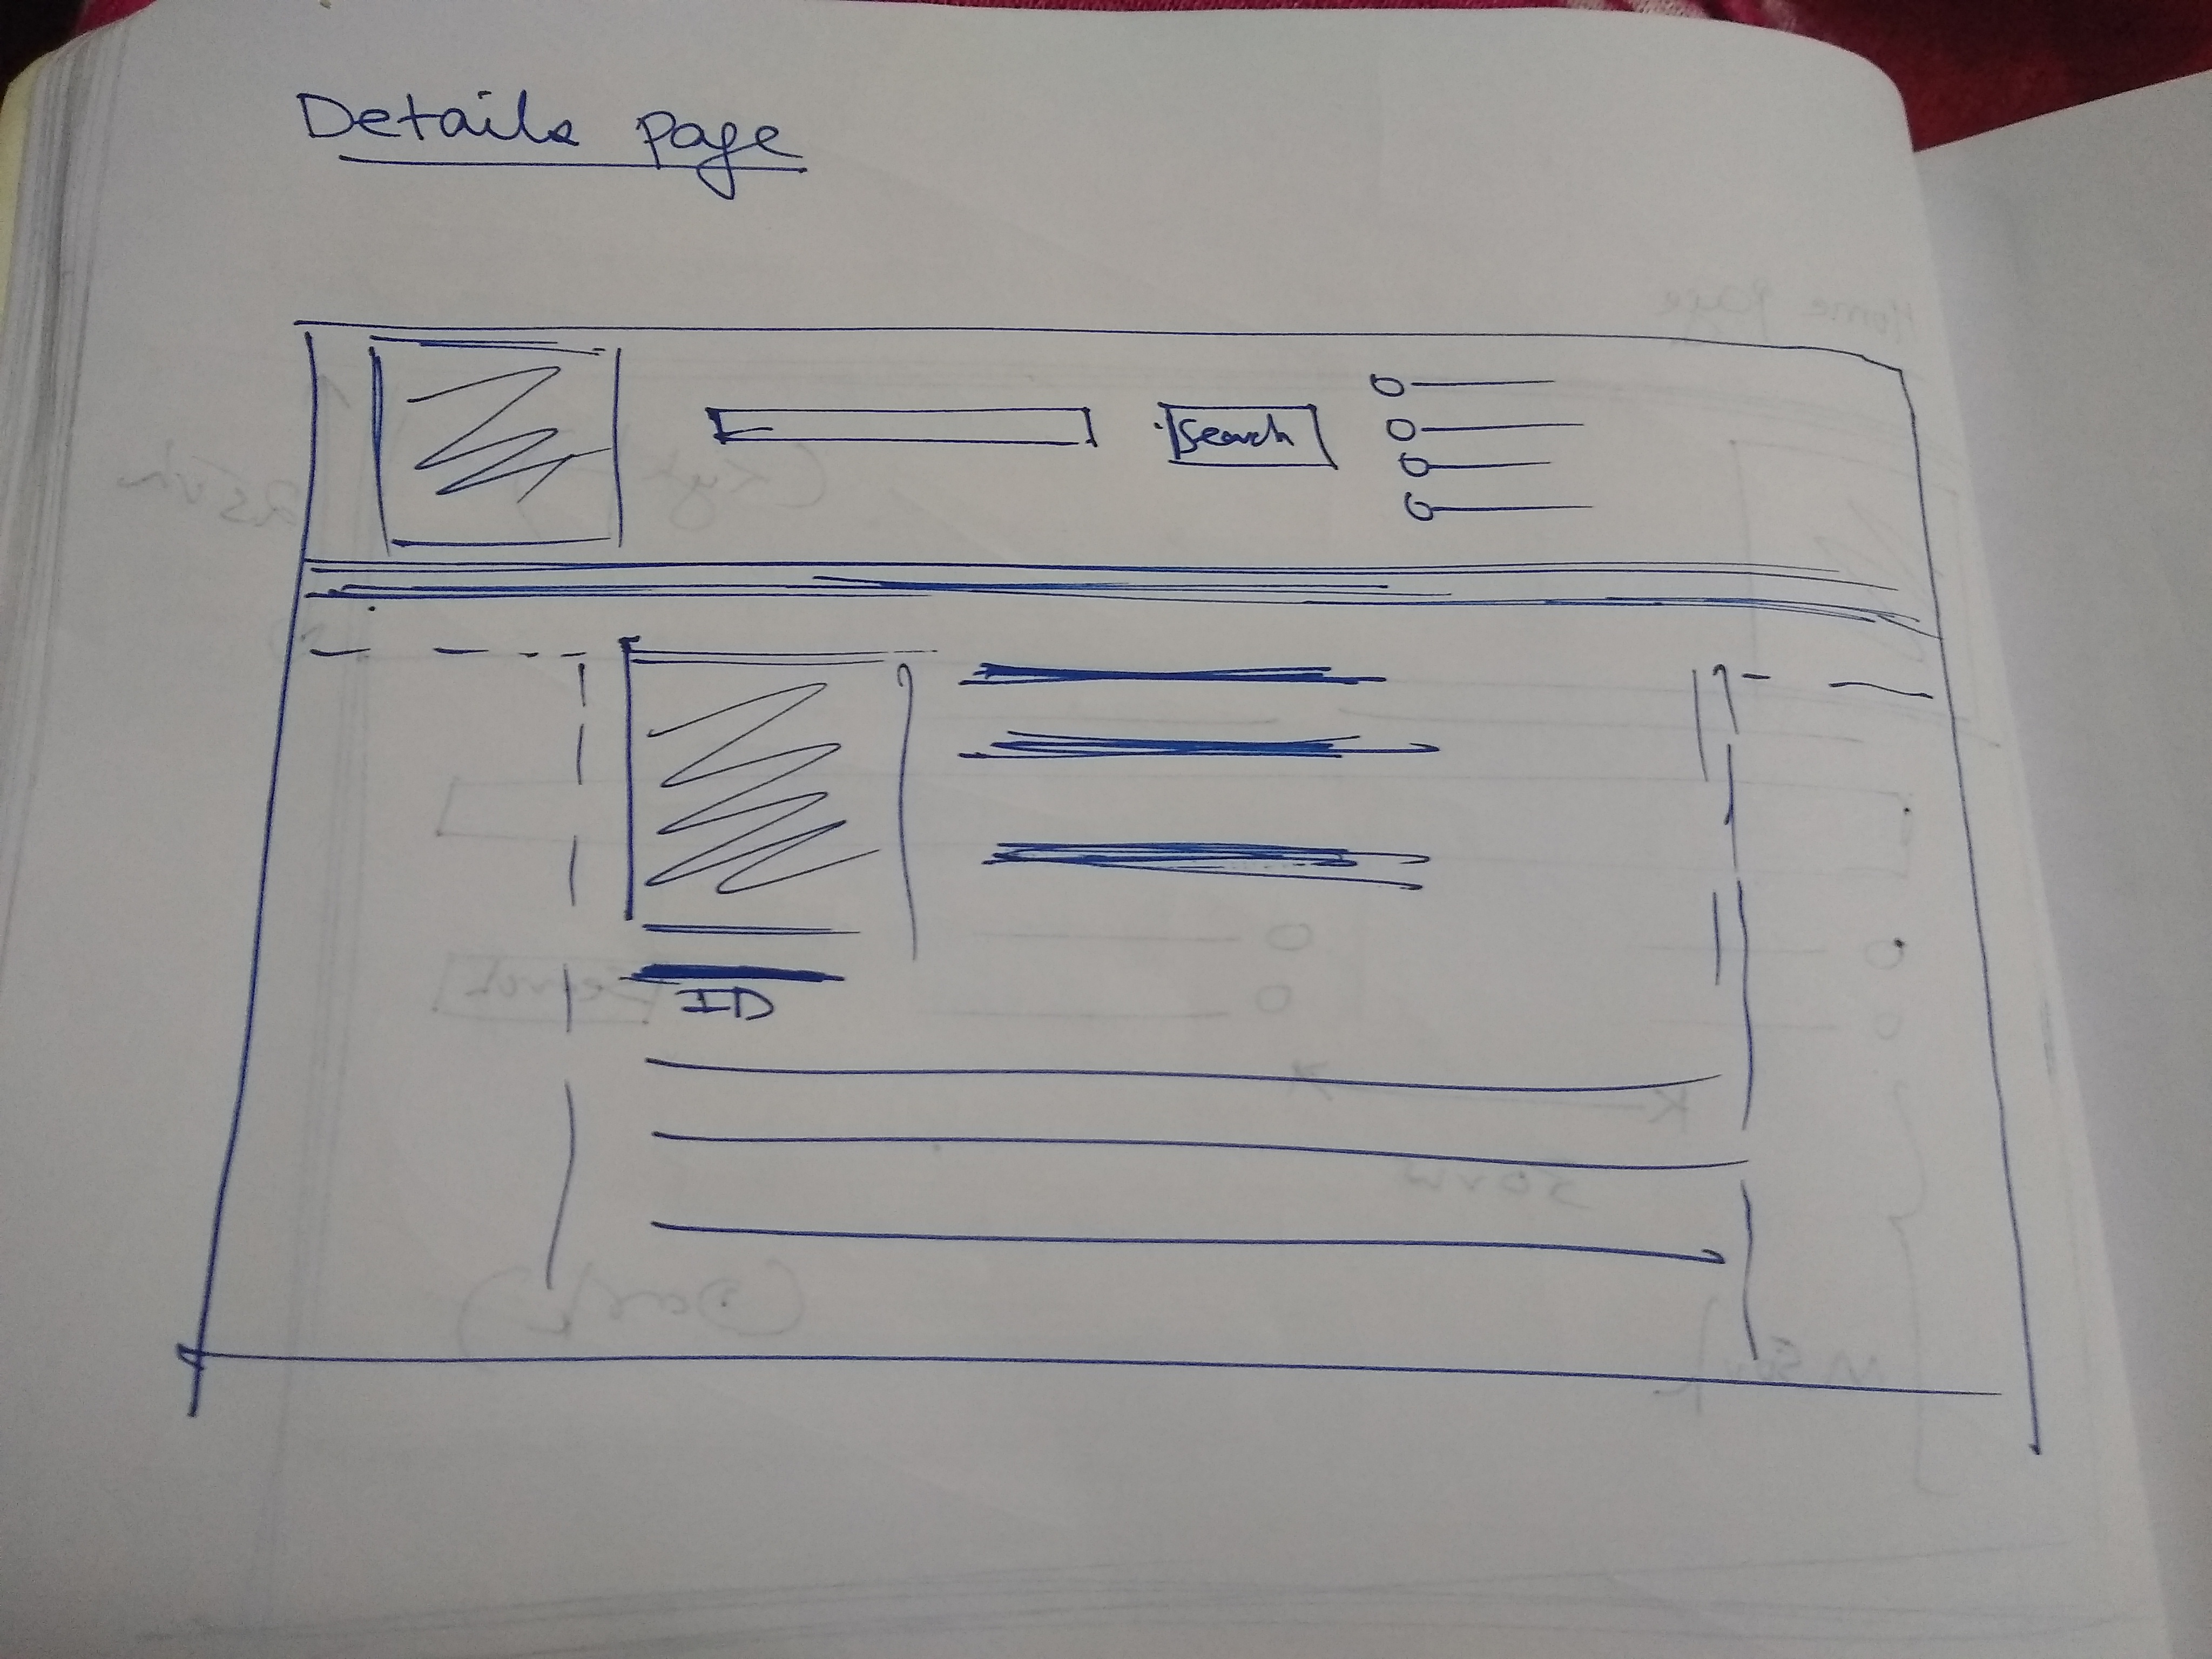 Details page
Search
ID